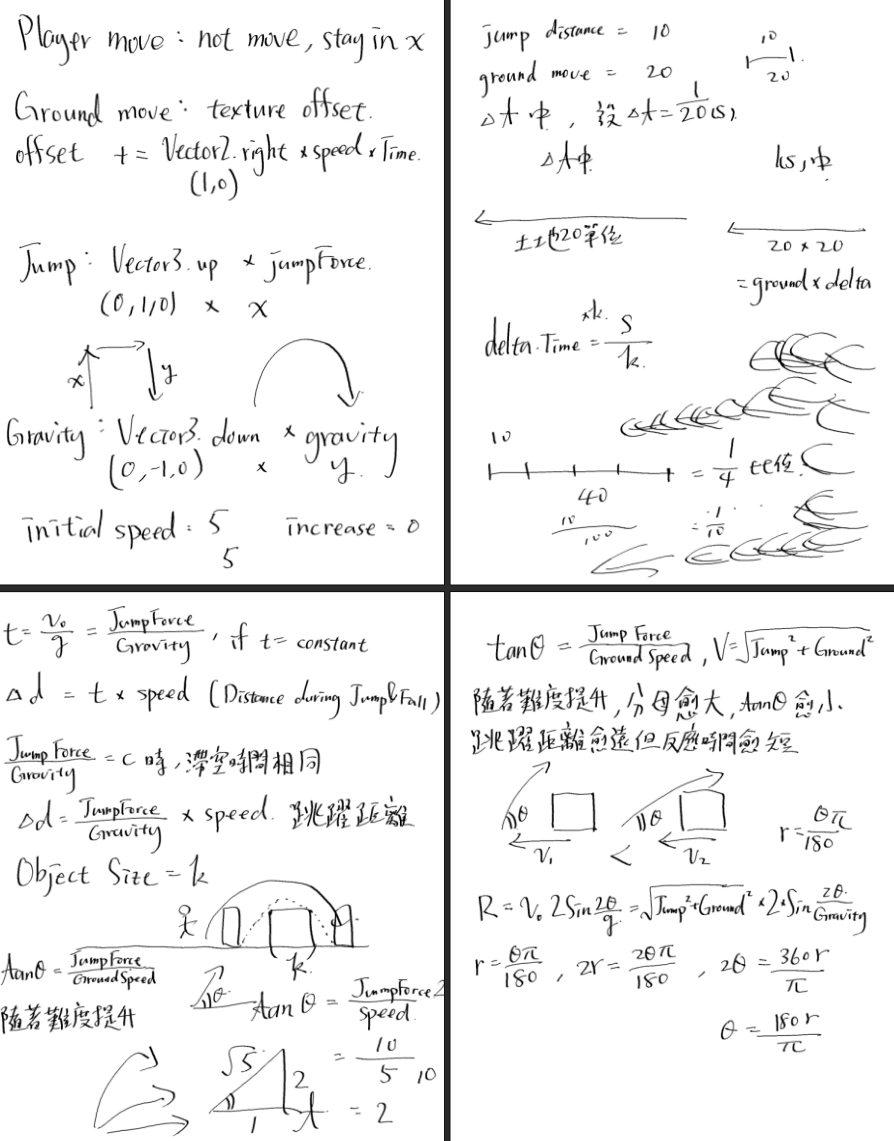 Player move : not move, stay in x
Ground move : texture offset.
offset += Vector2.right × speed × Time.
(1,0)
Jump : Vector3.up × jumpForce.
(0,1,0) × x
x y
Gravity : Vector3.down × gravity
(0,-1,0) × y.
initial speed : 5 increase = 0
5
jump distance = 10
10
20
ground move = 20
Δt 中, 設 Δt = 1/20(s),
Δt中 1s,中
土地20單位
20 × 20
= ground × delta
delta.Time = s/k.
×k.
10
40
= 1/4
10/100 = 1/10
t = v₀/g = JumpForce/Gravity, if t = constant
Δd = t × speed (Distance during Jump&Fall)
JumpForce/Gravity = C 時, 滯空時間相同
Δd = JumpForce/Gravity × speed. 跳躍距離
Object Size = k
k.
tanθ = JumpForce/GroundSpeed
θ tanθ = JumpForce/Speed.
隨著難度提升
= 10/5 10
√5 2
1 = 2
tanθ = Jump Force/Ground Speed, V = √Jump² + Ground²
隨著難度提升, 分母愈大, tanθ愈小.
跳躍距離愈遠但反應時間愈短
θ θ
V₁ < V₂
r = θπ/180
R = V₀ 2Sin 2θ/g = √Jump²+Ground² × 2×Sin 2θ/Gravity
r = θπ/180, 2r = 2θπ/180, 2θ = 360r/π
θ = 180r/π